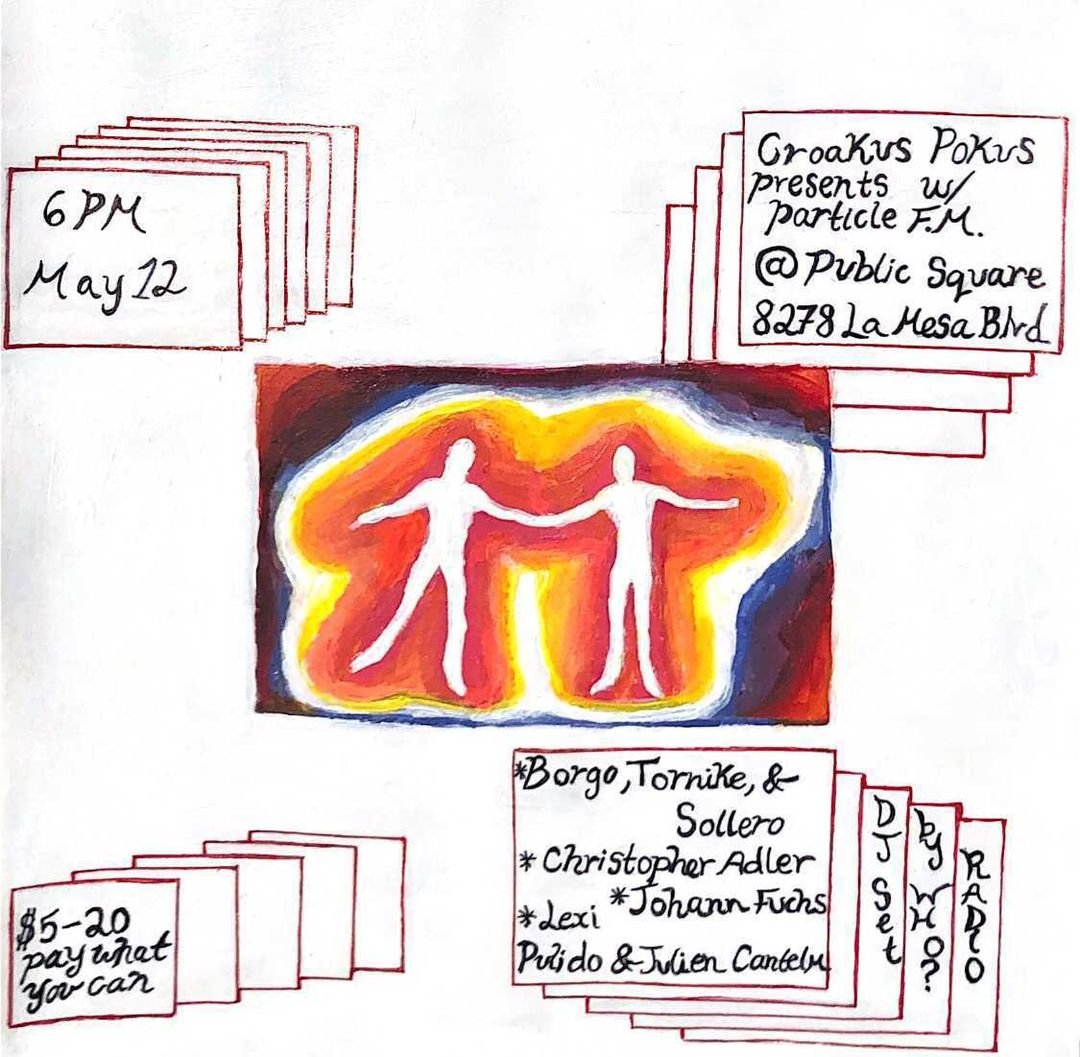 6 PM
May 12
Croakus Pokus
presents w/
particle F.M.
@ Public Square
8278 La Mesa Blvd
*Borgo, Tornike, &
Sollero
* Christopher Adler
*Johann Fuchs
*Lexi
Pulido & Julien Cantelm
DJ Set
by WHO?
RADIO
$5-20
pay what
you can